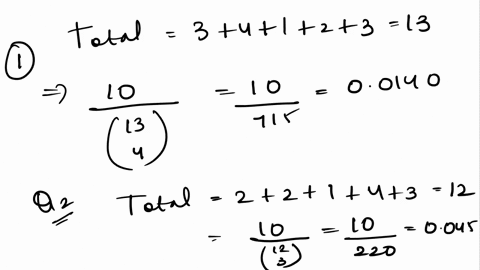 Total = 3+4+1+2+3 = 13
①
⇒ 10 / (13 4) = 10 / 715 = 0.0140
Q2 Total = 2+2+1+4+3 = 12
= 10 / (12 3) = 10 / 220 = 0.045